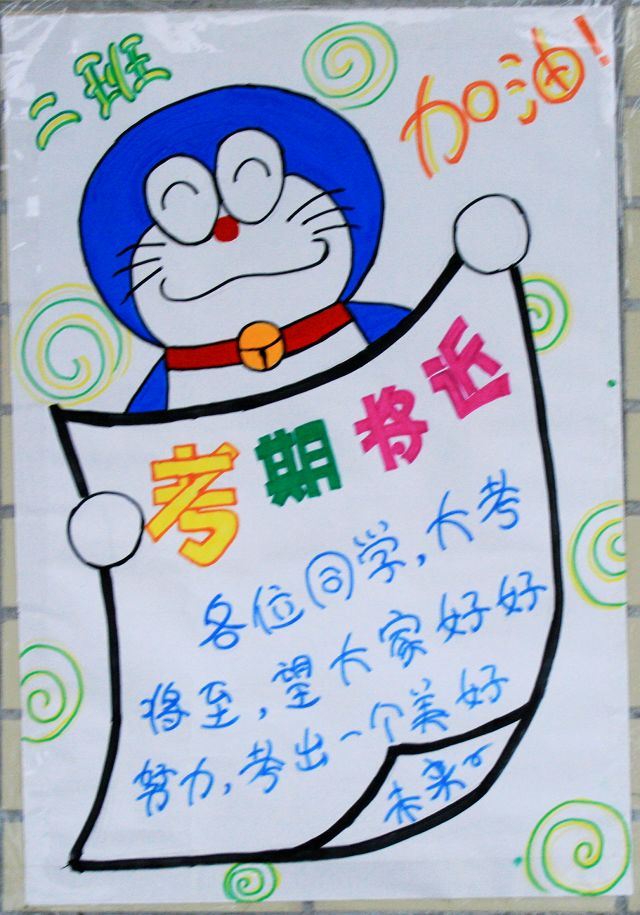 二班
加油!
考期将近
各位同学,大考
将至,望大家好好
努力,考出一个美好
未来